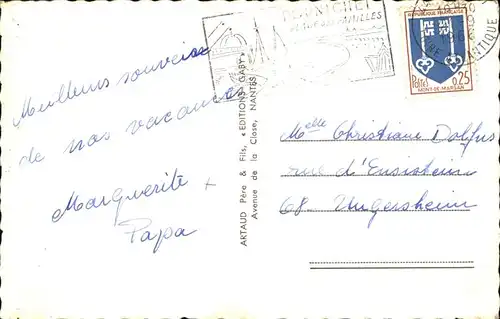 Meilleurs souvenirs
de nos vacances
Marguerite +
Papa
ARTAUD Père & Fils, « EDITIONS GABY »
Avenue de la Close, NANTES
PORNICHET
REPUBLIQUE FRANÇAISE
Postes 0,25
MONT-DE-MARSAN
ATLANTIQUE
Melle Christiane Dolfus
rue d'Ensisheim
68 Ungersheim